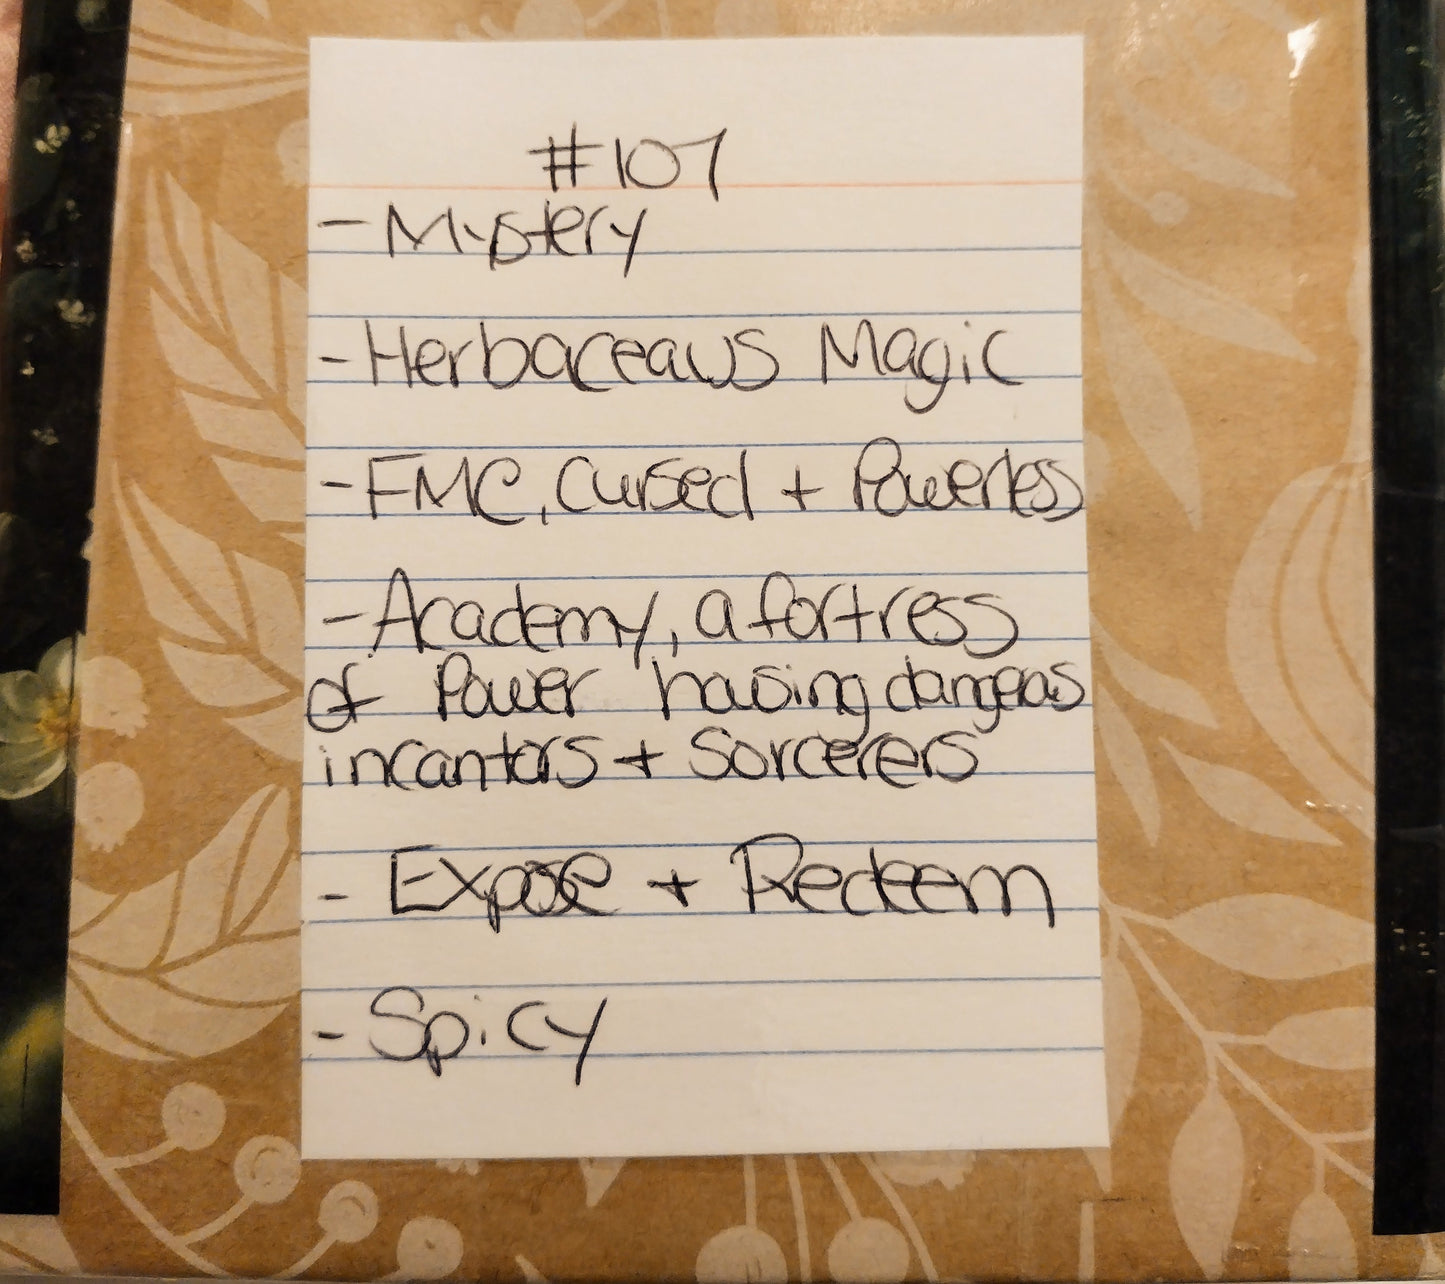 #107
- Mystery
- Herbaceaus Magic
- FMC, Cursed + Powerless
- Academy, a fortress
of Power having dangeros
incantors + Sorcerers
- Expose + Redeem
- Spicy